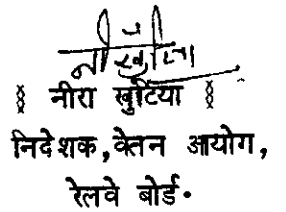 नीरा खुंटिया
निदेशक, वेतन आयोग,
रेलवे बोर्ड.